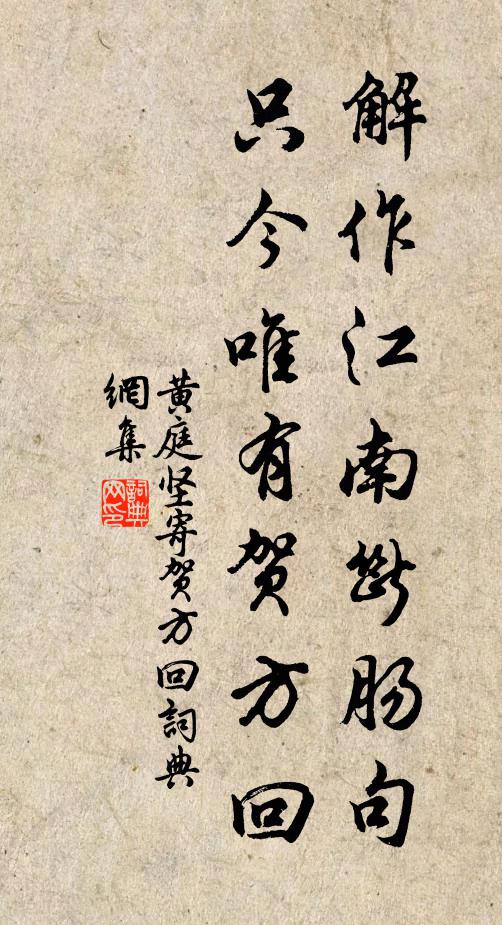 解作江南斷肠句
只今唯有贺方回
黄庭坚寄贺方回詞典
網集
詞典网印